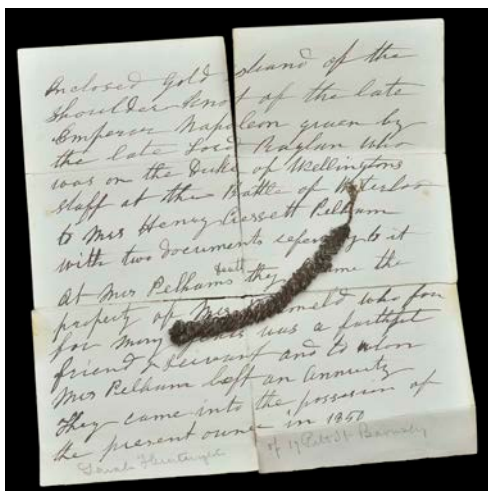 Inclosed Gold strand of the
Shoulder Knot of the late
Emperor Napoleon given by
the late Lord Raglan who
was on the Duke of Wellingtons
staff at the Battle of Waterloo
to Mrs Henry Cressett Pelham
with two documents refering to it
At Mrs Pelhams death they came the
property of Miss who for
for many years was a faithful
friend & servant and to whom
Mrs Pelham left an annuity
They came into the possession of
the present owner in 1850
Sarah of 19 Pitt St Barnsley